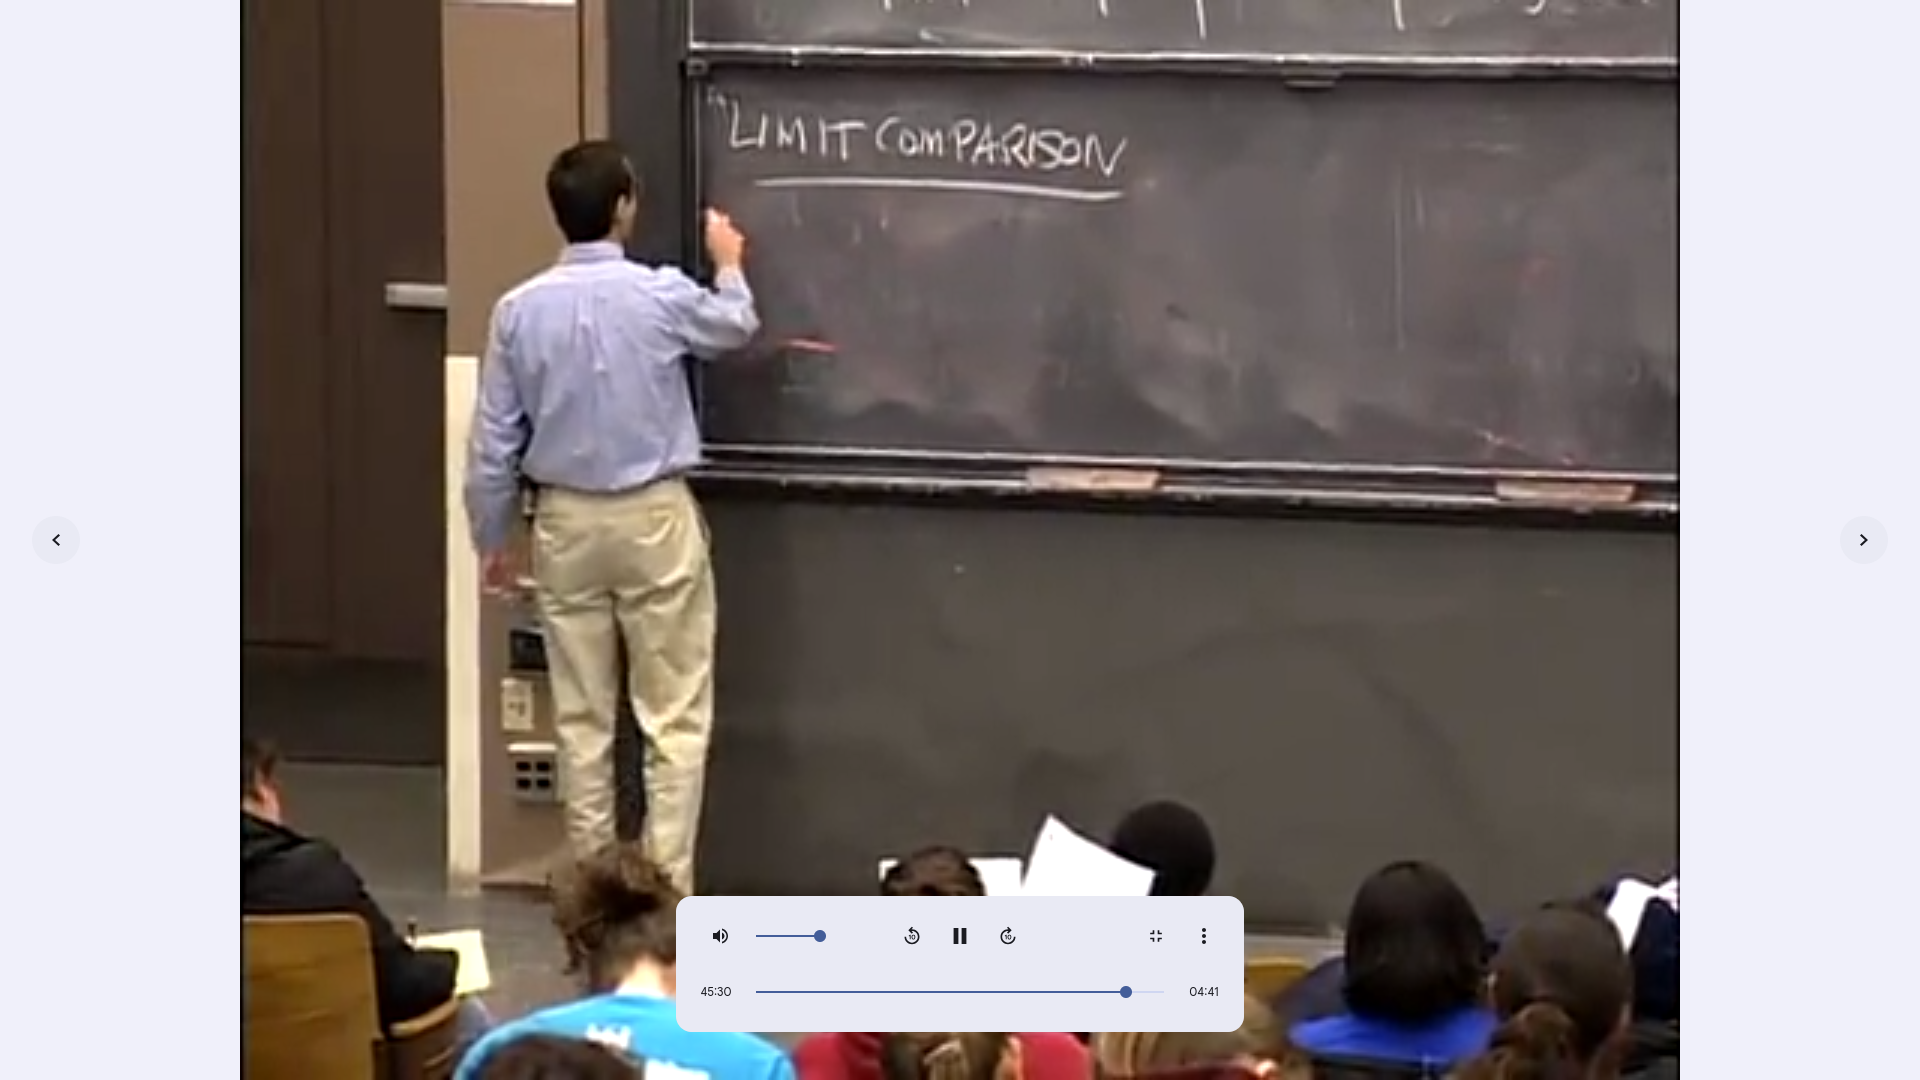 "LIMIT COMPARISON
45:30
04:41